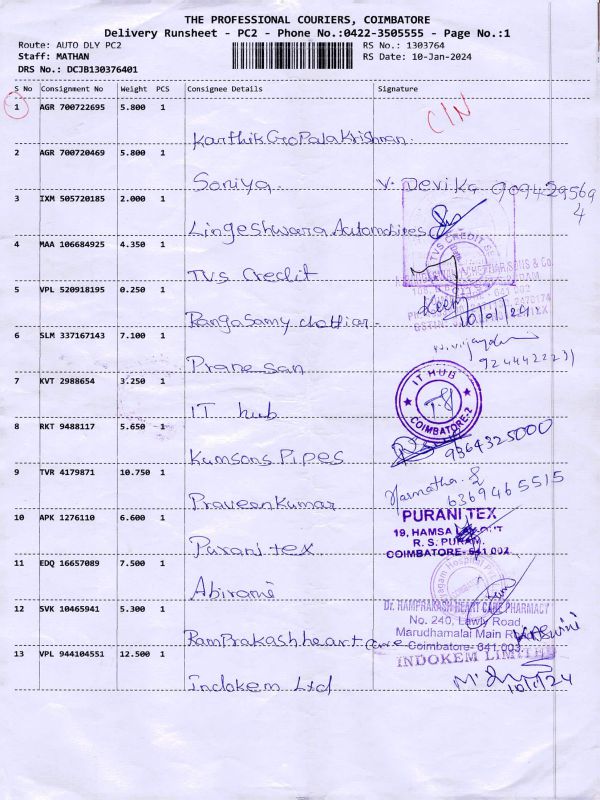 THE PROFESSIONAL COURIERS, COIMBATORE
Delivery Runsheet - PC2 - Phone No.:0422-3505555 - Page No.:1
Route: AUTO DLY PC2
RS No.: 1303764
Staff: MATHAN
RS Date: 10-Jan-2024
DRS No.: DCJB130376401
S No Consignment No Weight PCS Consignee Details Signature
1 AGR 700722695 5.800 1
C/N
Karthik GoPala Krishnan.
2 AGR 700720469 5.800 1
Soniya. V. Devika 9094295694
3 IXM 505720185 2.000 1
Lingeshwara Automobiles
4 MAA 106684925 4.350 1
TVS CREDIT
TVS Credit
5 VPL 520918195 0.250 1
10/01/24
Rangasamy chettiar
6 SLM 337167143 7.100 1
9244422231
Pranesan
7 KVT 2988654 3.250 1
IT HUB
COIMBATORE-2
IT hub
8 RKT 9488117 5.650 1
9364325000
Kumsons Pipes
9 TVR 4179871 10.750 1
6369465515
Praveenkumar
10 APK 1276110 6.600 1
PURANI TEX
19, HAMSA
R. S. PURAM,
COIMBATORE- 641 002
Purani tex
11 EDQ 16657089 7.500 1
Abirami
12 SVK 10465941 5.300 1
Dr. RAMPRAKASH HEART CARE PHARMACY
No. 240, Lawly Road,
Marudhamalai Main
Coimbatore- 641 003.
RamPrakash heart care
13 VPL 944104551 12.500 1
INDOKEM LIMITED
10/1/24
Indokem Ltd